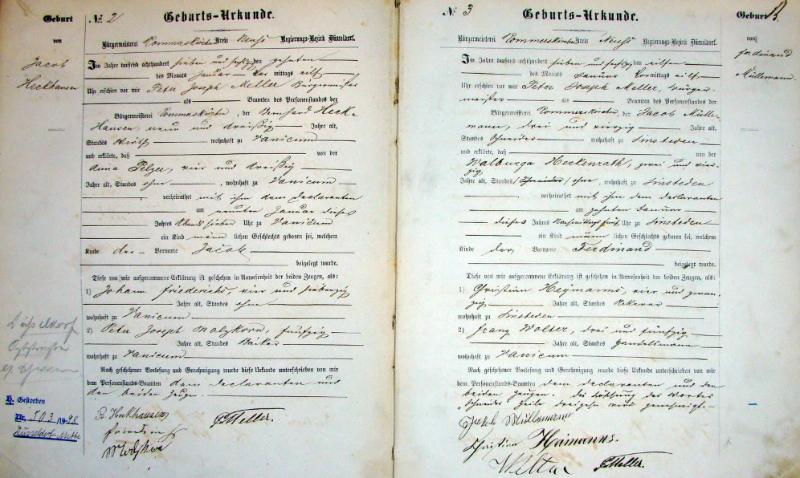 Geburt
von
Jacob
Heckhausen
№ 2
Geburts-Urkunde.
Bürgermeisterei Rommerskirchen Kreis Neuß Regierungs-Bezirk Düsseldorf.
Im Jahre tausend achthundert sieben und sechszig, zehnten
des Monats Januar der mittags elf
Uhr erschien vor mir Peter Joseph Meller Bürgermeister
als Beamten des Personenstandes der
Bürgermeisterei Rommerskirchen, der Bernhard Heck-
hausen, neun und dreißig Jahre alt,
Standes wohnhaft zu Vanicum
und erklärte, daß von der
Anna Pelzer, vier und dreißig
Jahre alt, Standes ohne, wohnhaft zu Vanicum
verheirathet mit ihm dem Declaranten
am neunten Januar dieses
Jahres Abends sieben Uhr zu Vanicum
ein Kind männlichen Geschlechts geboren sei, welchem
Kinde der Vorname Jacob
beigelegt wurde.
Diese von mir aufgenommene Erklärung ist geschehen in Anwesenheit der beiden Zeugen, als:
1) Johann Friederichs, vier und
Jahre alt, Standes ohne
wohnhaft zu Vanicum
2) Peter Joseph
Jahre alt, Standes
wohnhaft zu Vanicum
Nach geschehener Vorlesung und Genehmigung wurde diese Urkunde unterschrieben von mir
dem Personenstands-Beamten dem Declaranten und
den beiden Zeugen.
B. Heckhausen
PJMeller.
Düsseldorf
Gestorben
Nr. 503
Düsseldorf-Mitte
№ 3
Geburts-Urkunde.
Bürgermeisterei Rommerskirchen Kreis Neuß Regierungs-Bezirk Düsseldorf.
Im Jahre tausend achthundert sieben und sechszig, elften
des Monats Januar Vormittags elf
Uhr erschien vor mir Peter Joseph Meller, Bürger-
meister als Beamten des Personenstandes der
Bürgermeisterei Rommerskirchen, der Jacob Mülle-
mann, drei und vierzig Jahre alt,
Standes Schneider wohnhaft zu Sinsteden
und erklärte, daß von der
Walburga Heckenrath, zwei und vier-
zig
Jahre alt, Standes ohne, wohnhaft zu Sinsteden
verheirathet mit ihm dem Declaranten
am zehnten Januar
dieses Jahres Nachmittags fünf Uhr zu Sinsteden
ein Kind männlichen Geschlechts geboren sei, welchem
Kinde der Vorname Ferdinand
beigelegt wurde.
Diese von mir aufgenommene Erklärung ist geschehen in Anwesenheit der beiden Zeugen, als:
1) Christian Heimanns, vier und zwan-
zig Jahre alt, Standes Ackerer
wohnhaft zu Sinsteden
2) Franz Wolter, drei und fünfzig
Jahre alt, Standes Handelsmann
wohnhaft zu Vanicum
Nach geschehener Vorlesung und Genehmigung wurde diese Urkunde unterschrieben von mir
dem Personenstands-Beamten dem Declaranten und den
beiden Zeugen. Die des Wortes
Schneider Zeile dreizehn wird genehmigt.
Jacob Müllemann
Christian Heimanns.
Wolter
PJMeller.
Geburt
von
Ferdinand
Müllemann.